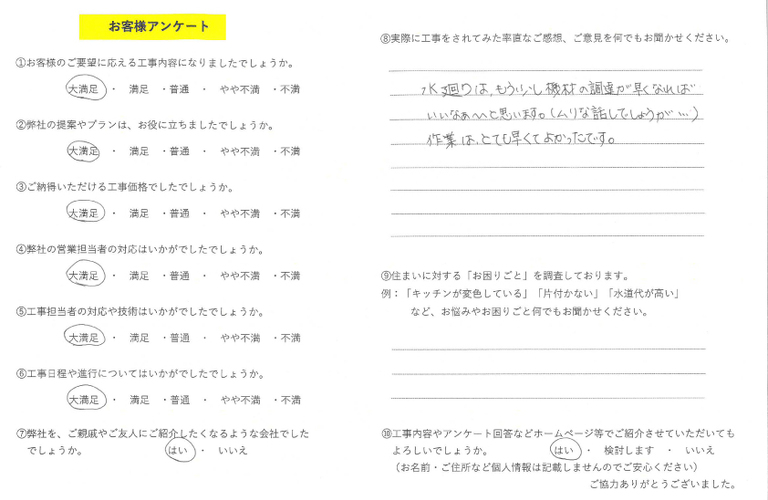 お客様アンケート
①お客様のご要望に応える工事内容になりましたでしょうか。
大満足 ・ 満足 ・普通 ・ やや不満 ・不満
②弊社の提案やプランは、お役に立ちましたでしょうか。
大満足 ・ 満足 ・普通 ・ やや不満 ・不満
③ご納得いただける工事価格でしたでしょうか。
大満足 ・ 満足 ・普通 ・ やや不満 ・不満
④弊社の営業担当者の対応はいかがでしたでしょうか。
大満足 ・ 満足 ・普通 ・ やや不満 ・不満
⑤工事担当者の対応や技術はいかがでしたでしょうか。
大満足 ・ 満足 ・普通 ・ やや不満 ・不満
⑥工事日程や進行についてはいかがでしたでしょうか。
大満足 ・ 満足 ・普通 ・ やや不満 ・不満
⑦弊社を、ご親戚やご友人にご紹介したくなるような会社でした
でしょうか。 はい ・ いいえ
⑧実際に工事をされてみた率直なご感想、ご意見を何でもお聞かせください。
水廻りは、もう少し機材の調達が早くなれば
いいなぁ〜と思います。(ムリな話しでしょうが…)
作業は、とても早くてよかったです。
⑨住まいに対する「お困りごと」を調査しております。
例：「キッチンが変色している」「片付かない」「水道代が高い」
など、お悩みやお困りごと何でもお聞かせください。
⑩工事内容やアンケート回答などホームページ等でご紹介させていただいても
よろしいでしょうか。 はい ・ 検討します ・ いいえ
（お名前・ご住所など個人情報は記載しませんのでご安心ください）
ご協力ありがとうございました。